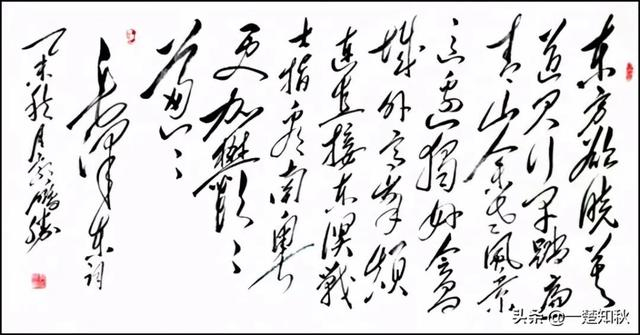 東方欲晓莫
道君行早踏遍
青山人未老風景
这边獨好會昌
城外高峰颠
连直接东溟戰
士指看南粤
更加欝々
葱々
毛泽东词
未秋月
头条 @一楚知秋